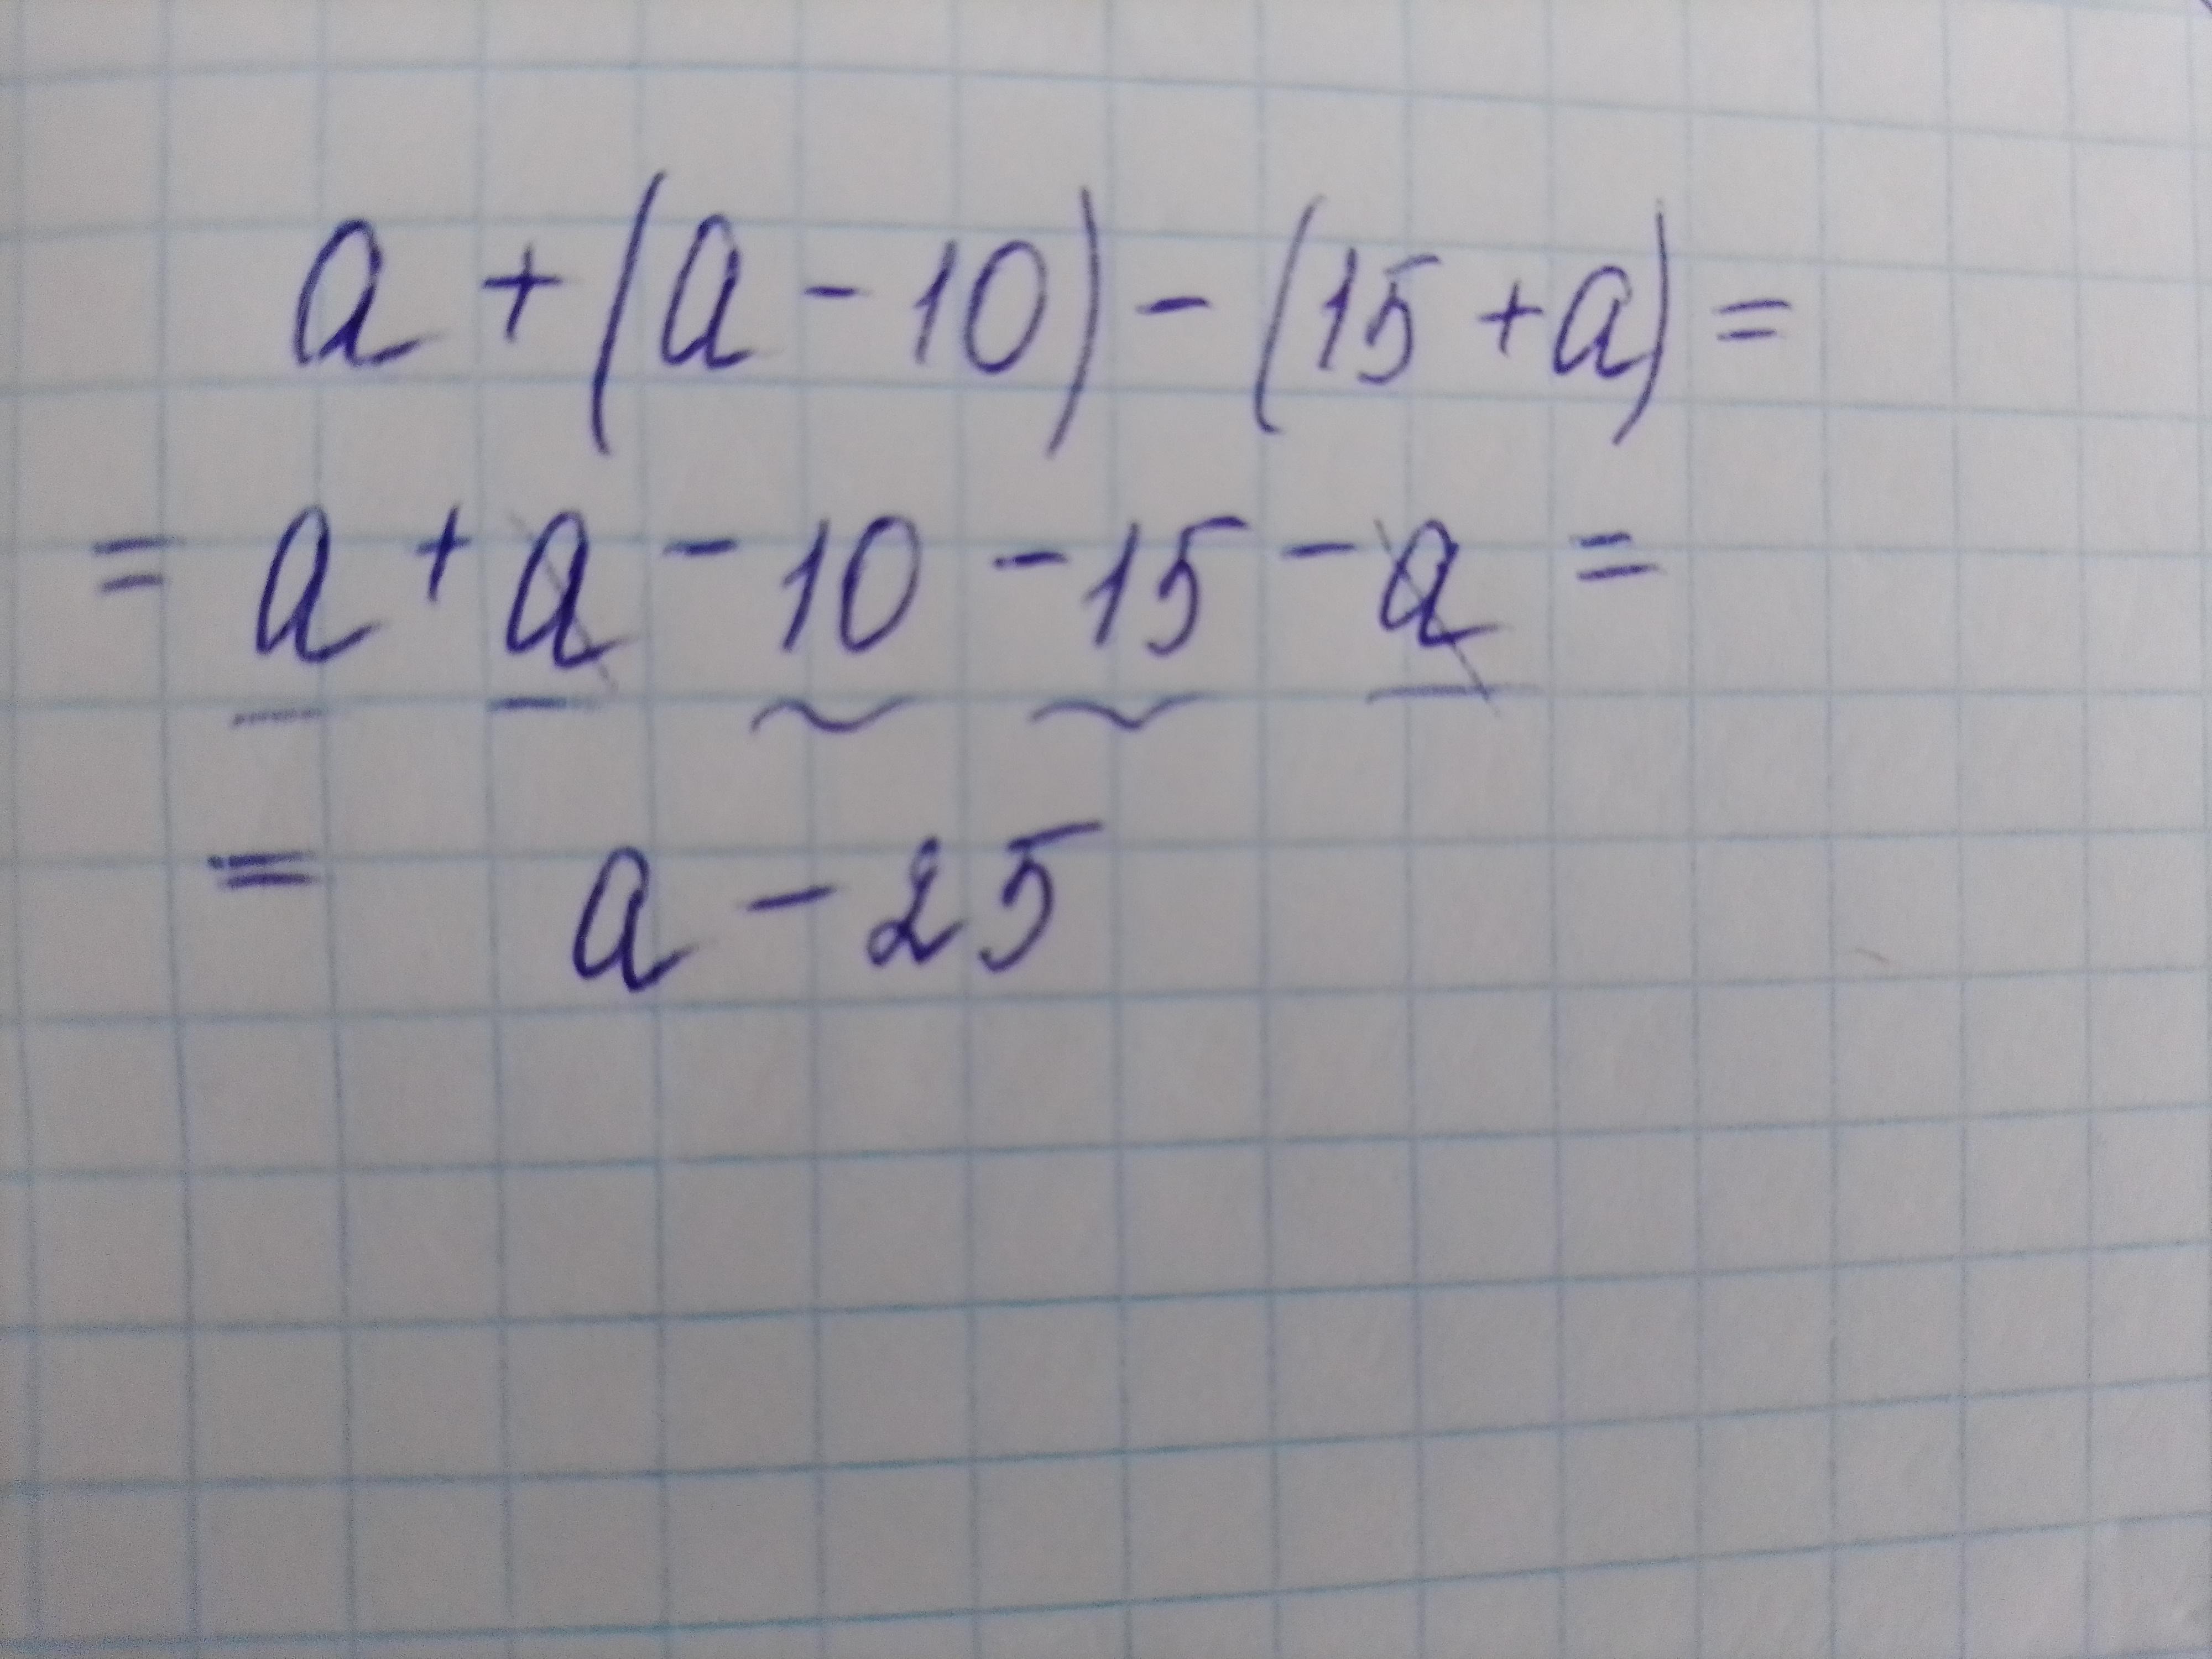 a + (a - 10) - (15 + a) =
= a + a - 10 - 15 - a =
= a - 25